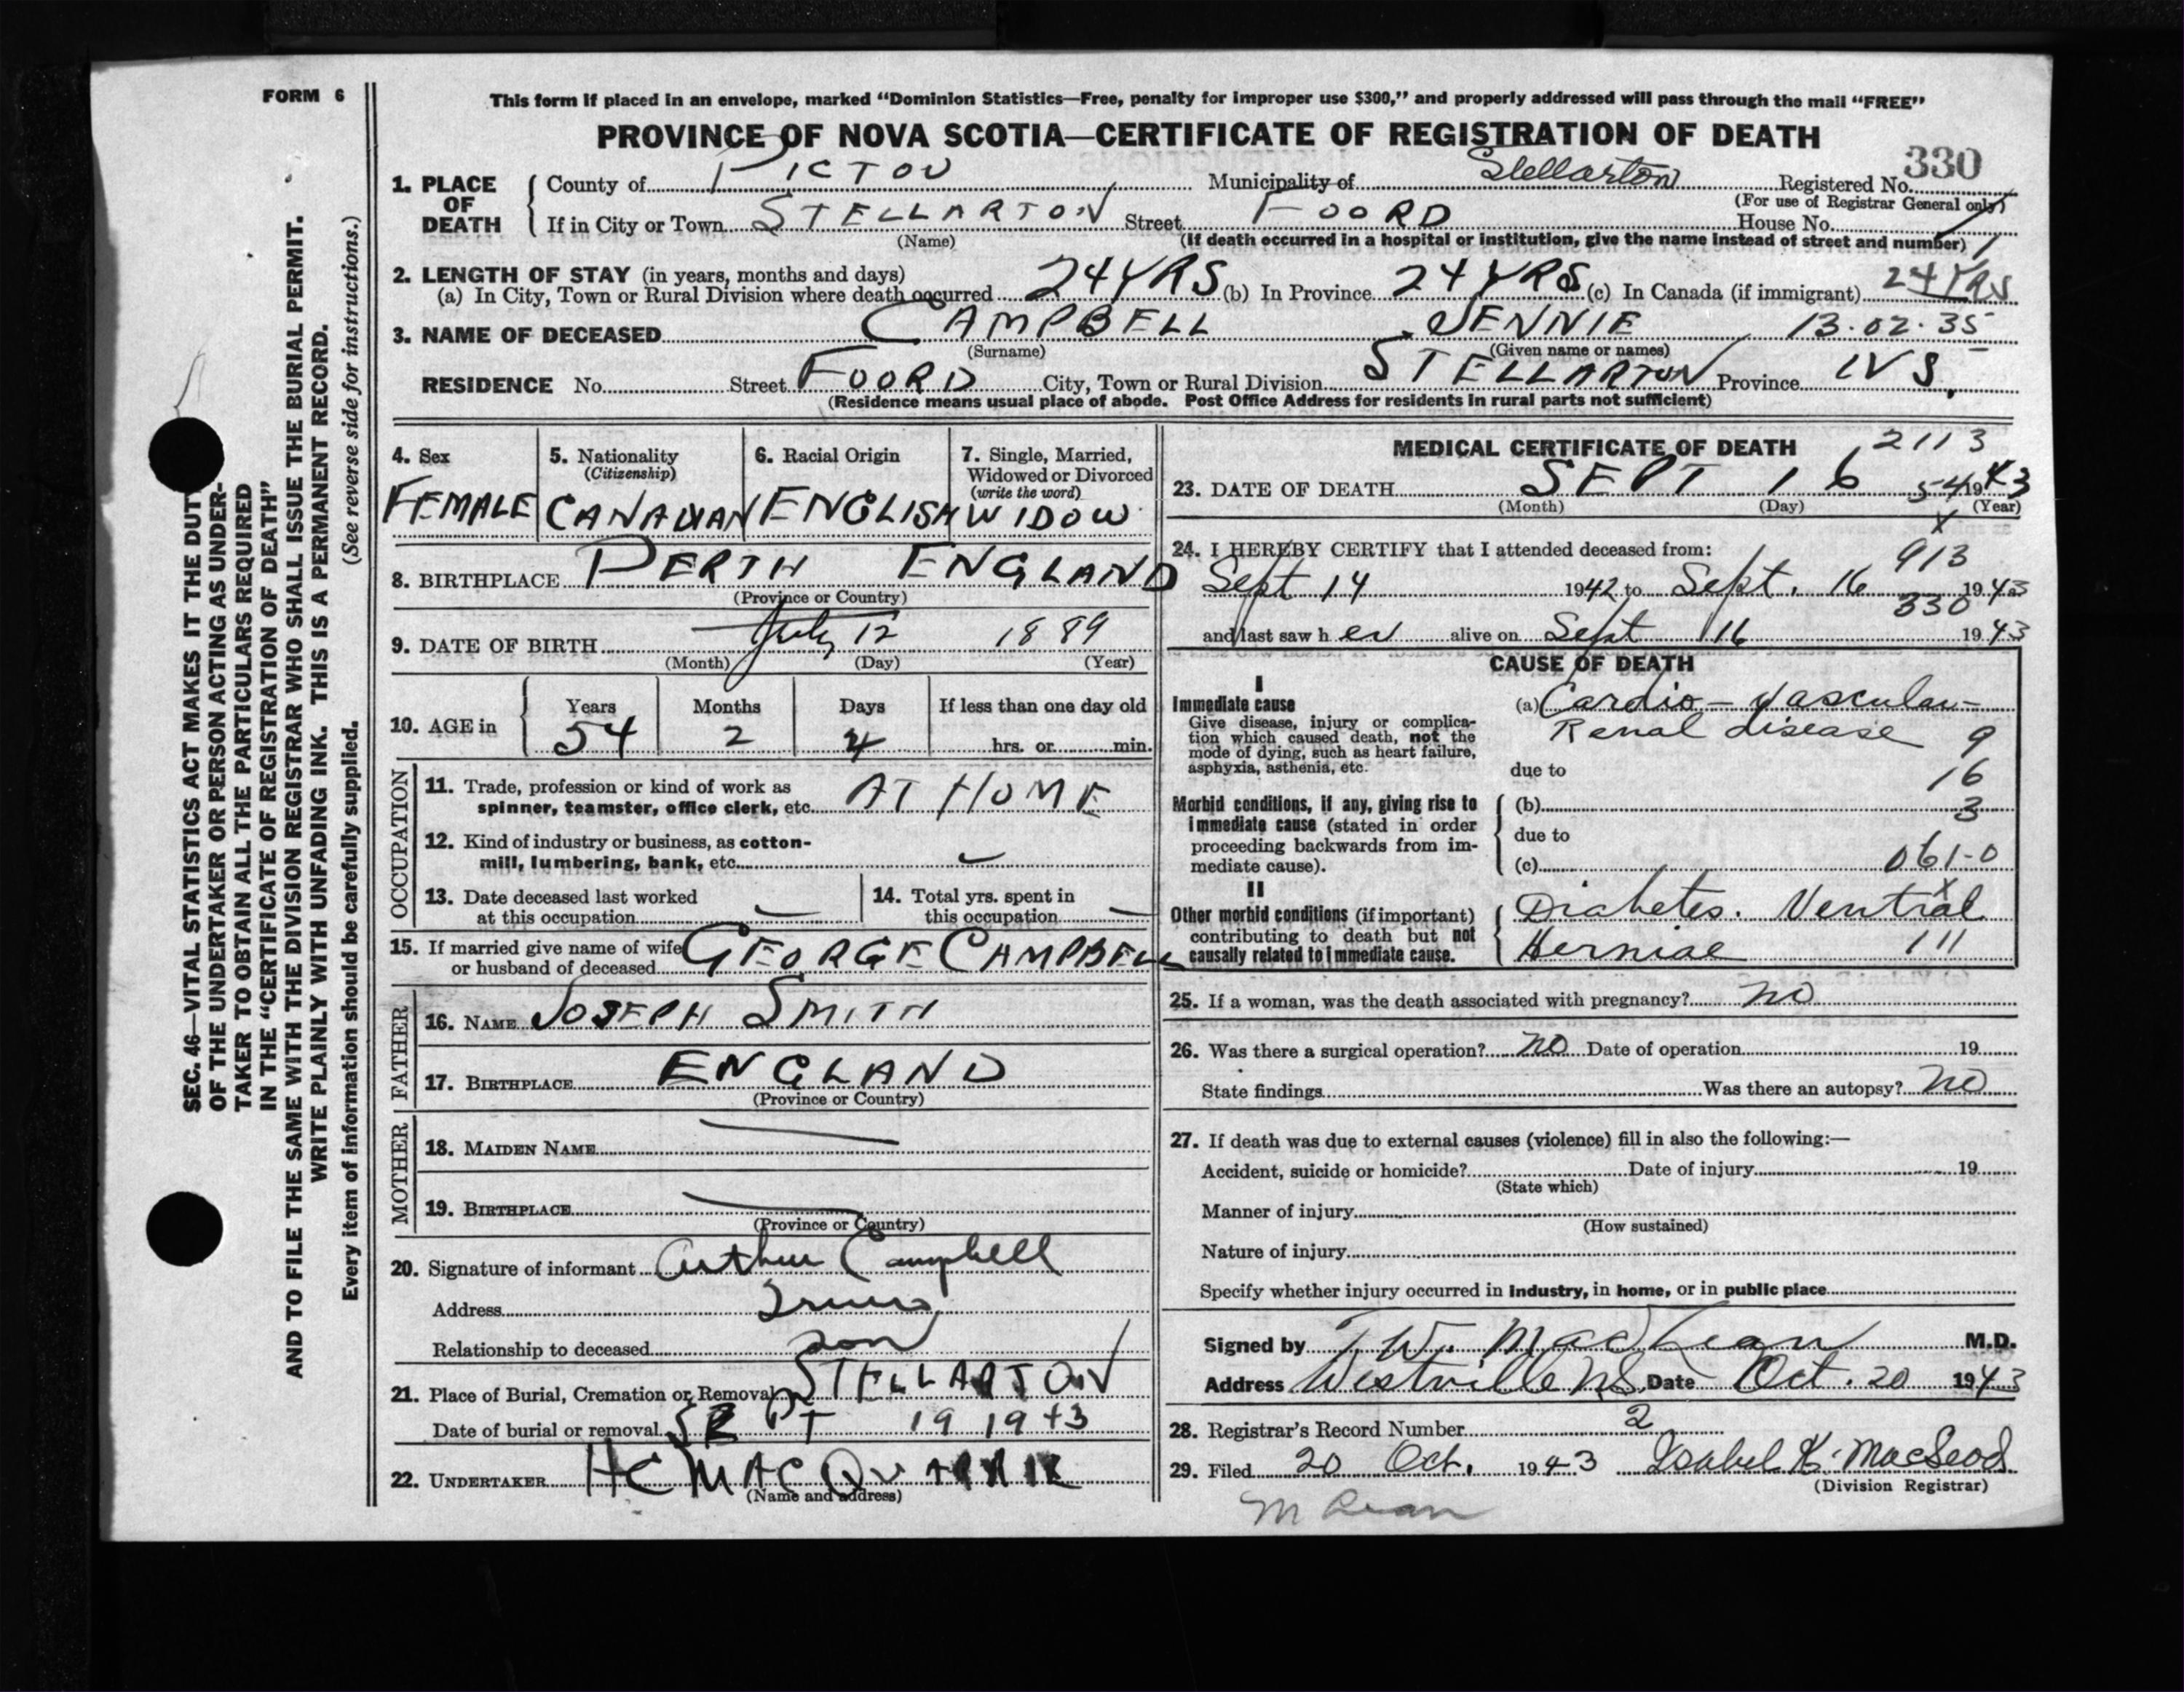 FORM 6
This form if placed in an envelope, marked “Dominion Statistics—Free, penalty for improper use $300,” and properly addressed will pass through the mail “FREE”
PROVINCE OF NOVA SCOTIA—CERTIFICATE OF REGISTRATION OF DEATH
330
1. PLACE OF DEATH County of PICTOU Municipality of Stellarton Registered No.
(For use of Registrar General only)
If in City or Town STELLARTON Street FOORD House No.
(Name) (If death occurred in a hospital or institution, give the name instead of street and number)
2. LENGTH OF STAY (in years, months and days)
(a) In City, Town or Rural Division where death occurred 24 YRS (b) In Province 24 YRS (c) In Canada (if immigrant) 24 YRS
3. NAME OF DECEASED CAMPBELL JENNIE 13.02.35
(Surname) (Given name or names)
RESIDENCE No. Street FOORD City, Town or Rural Division STELLARTON Province N S.
(Residence means usual place of abode. Post Office Address for residents in rural parts not sufficient)
4. Sex 5. Nationality (Citizenship) 6. Racial Origin 7. Single, Married, Widowed or Divorced (write the word)
FEMALE CANADIAN ENGLISH WIDOW
8. BIRTHPLACE PERTH ENGLAND
(Province or Country)
9. DATE OF BIRTH July 12 1889
(Month) (Day) (Year)
10. AGE in Years Months Days If less than one day old
54 2 4 hrs. or min.
OCCUPATION
11. Trade, profession or kind of work as
spinner, teamster, office clerk, etc. AT HOME
12. Kind of industry or business, as cotton-
mill, lumbering, bank, etc.
13. Date deceased last worked
at this occupation
14. Total yrs. spent in
this occupation
15. If married give name of wife
or husband of deceased GEORGE CAMPBELL
FATHER
16. NAME JOSEPH SMITH
17. BIRTHPLACE ENGLAND
(Province or Country)
MOTHER
18. MAIDEN NAME
19. BIRTHPLACE
(Province or Country)
20. Signature of informant Arthur Campbell
Address Truro
Relationship to deceased son
21. Place of Burial, Cremation or Removal STELLARTON
Date of burial or removal SEPT 19 1943
22. UNDERTAKER HC MACQUARRIE
(Name and address)
MEDICAL CERTIFICATE OF DEATH 2113
23. DATE OF DEATH SEPT 16 54 1943
(Month) (Day) (Year)
x
24. I HEREBY CERTIFY that I attended deceased from: 913
Sept 14 1942 to Sept. 16 1943
330
and last saw her alive on Sept 16 1943
CAUSE OF DEATH
I
Immediate cause
Give disease, injury or complica-
tion which caused death, not the
mode of dying, such as heart failure,
asphyxia, asthenia, etc.
(a) Cardio-Vascular-
Renal disease 9
due to 16
Morbid conditions, if any, giving rise to
immediate cause (stated in order
proceeding backwards from im-
mediate cause).
(b) 3
due to
(c) 061-0
x
II
Other morbid conditions (if important)
contributing to death but not
causally related to immediate cause.
Diabetes. Ventral
Herniae 111
25. If a woman, was the death associated with pregnancy? no
26. Was there a surgical operation? no Date of operation 19
State findings Was there an autopsy? no
27. If death was due to external causes (violence) fill in also the following:—
Accident, suicide or homicide? Date of injury 19
(State which)
Manner of injury
(How sustained)
Nature of injury
Specify whether injury occurred in industry, in home, or in public place
Signed by T W. MacLean M.D.
Address Westville NS. Date Oct. 20 1943
28. Registrar's Record Number 2
29. Filed 20 Oct. 1943 Isabel K. MacLeod
(Division Registrar)
M Lean
SEC. 46—VITAL STATISTICS ACT MAKES IT THE DUTY
OF THE UNDERTAKER OR PERSON ACTING AS UNDER-
TAKER TO OBTAIN ALL THE PARTICULARS REQUIRED
IN THE “CERTIFICATE OF REGISTRATION OF DEATH”
AND TO FILE THE SAME WITH THE DIVISION REGISTRAR WHO SHALL ISSUE THE BURIAL PERMIT.
WRITE PLAINLY WITH UNFADING INK. THIS IS A PERMANENT RECORD.
Every item of information should be carefully supplied. (See reverse side for instructions.)